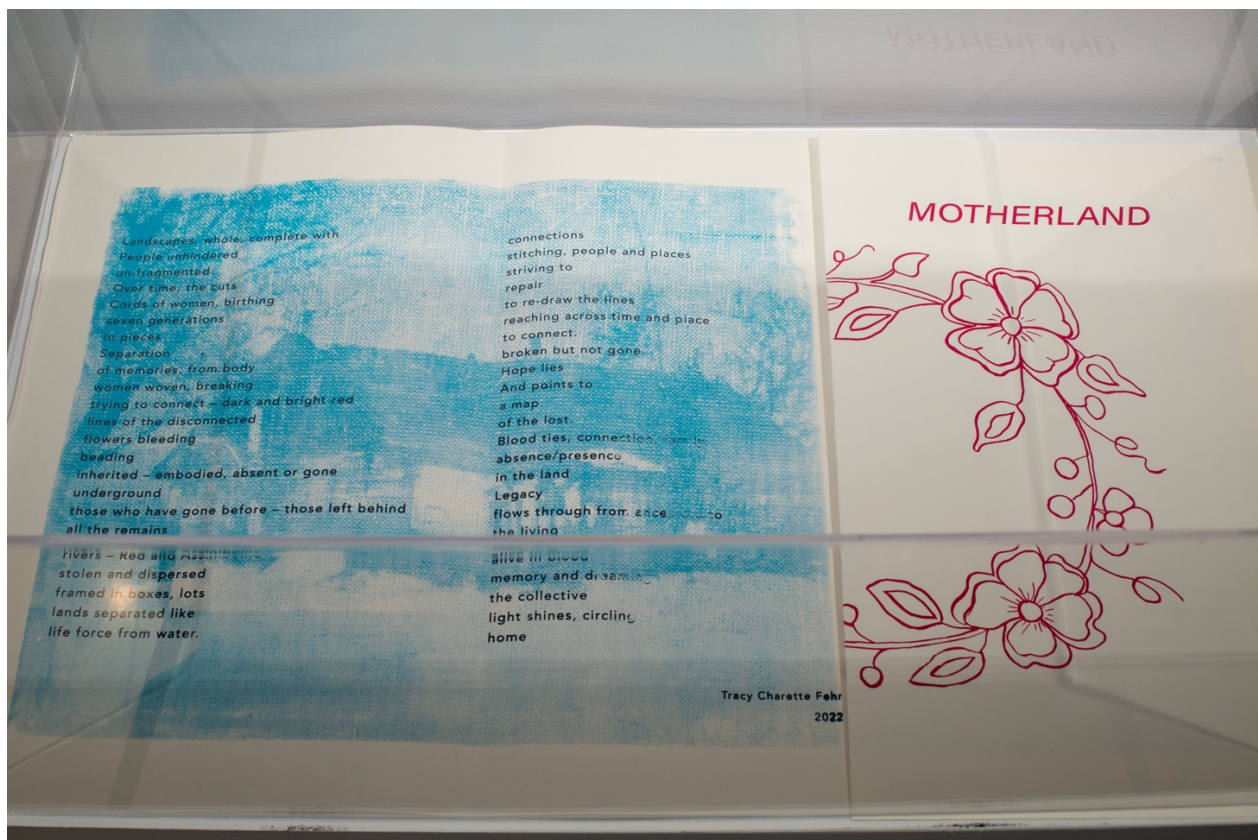 Landscapes, whole, complete with
People unhindered
un-fragmented
Over time, the cuts
Cords of women, birthing
seven generations
in pieces
Separation
of memories, from body
women woven, breaking
trying to connect – dark and bright red
lines of the disconnected
flowers bleeding
beading
inherited – embodied, absent or gone
underground
those who have gone before – those left behind
all the remains
rivers – Red and Assiniboine
stolen and dispersed
framed in boxes, lots
lands separated like
life force from water.
connections
stitching, people and places
striving to
repair
to re-draw the lines
reaching across time and place
to connect.
broken but not gone
Hope lies
And points to
a map
of the lost.
Blood ties, connection,
absence/presence
in the land
Legacy
flows through from to
the living
alive in blood
memory and
the collective
light shines, circling
home
Tracy Charette Fehr
2022
MOTHERLAND
MOTHERLAND